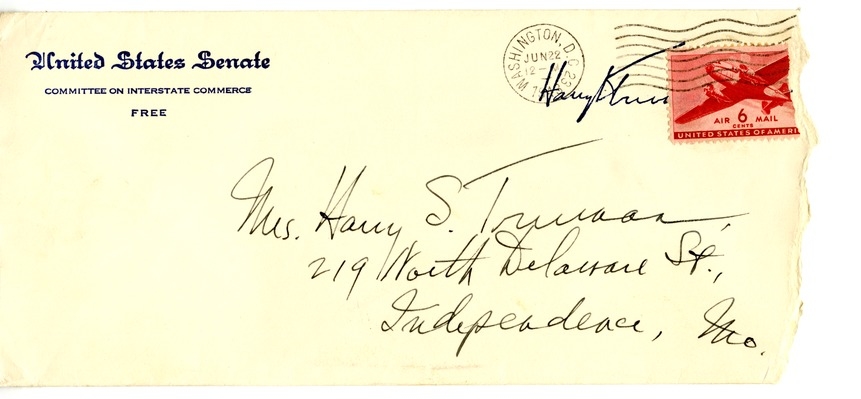 United States Senate
COMMITTEE ON INTERSTATE COMMERCE
FREE
WASHINGTON, D.C.
JUN 22
Harry S Tru
AIR 6 MAIL
CENTS
UNITED STATES OF AMERI
Mrs. Harry S. Truman,
219 North Delaware St.,
Independence, Mo.